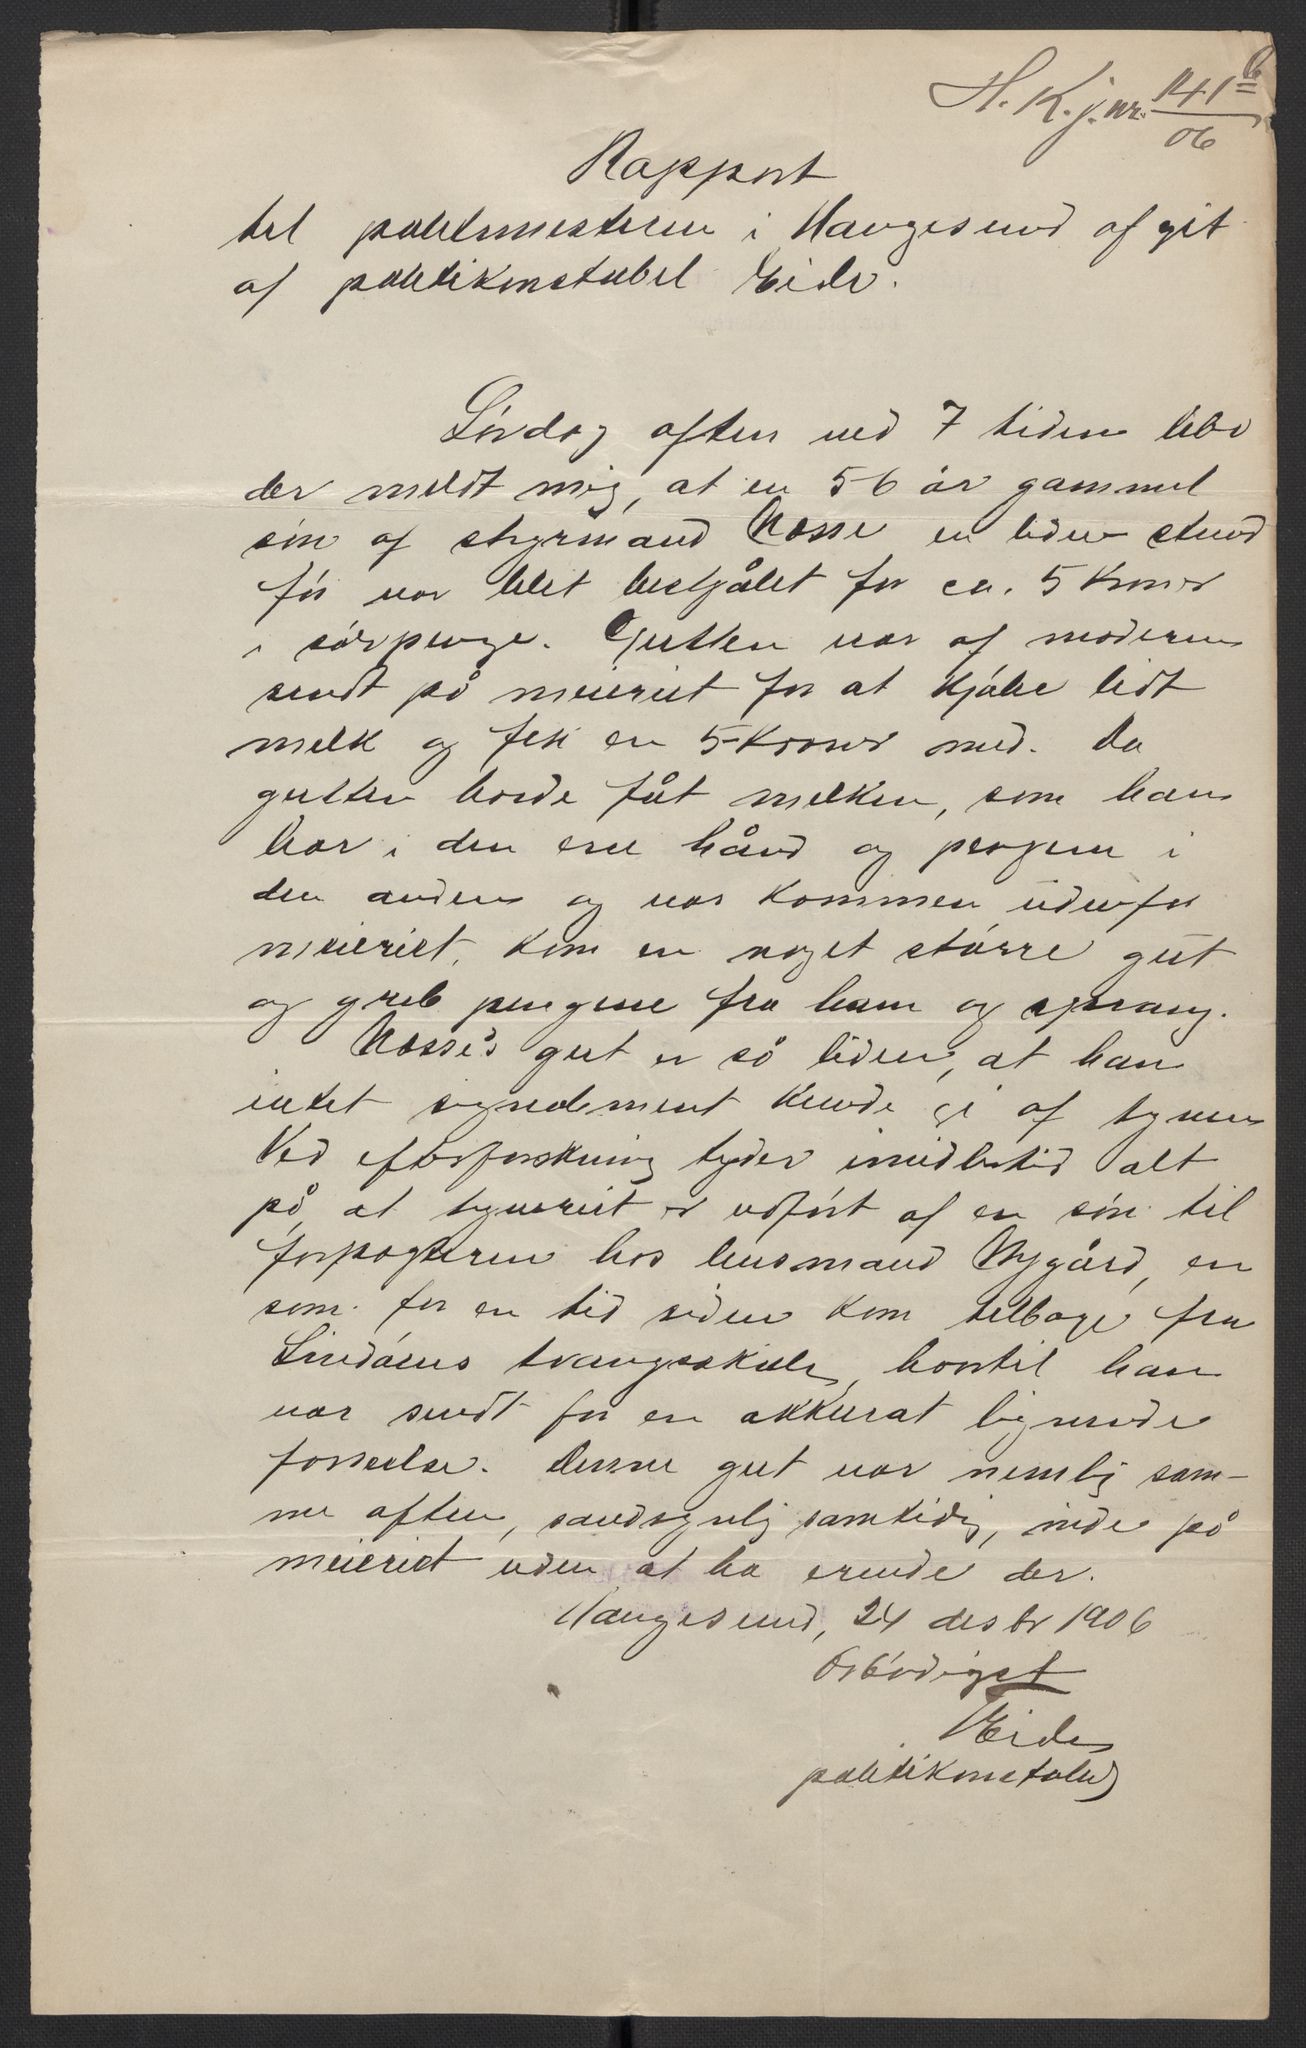 H. K. j. nr. 141 b
06
Rapport
til politimesteren i Haugesund afgit
af politikonstabel Eide.
Lördag aften ved 7 tiden blev
der meldt mig, at en 5 6 år gammel
sön af styrmand Næsse en liden stund
för var blet bestjålet for ca. 5 kroner
i sölvpenge. Gutten var af moderen
sendt på meieriet for at kjöbe lidt
melk og fik en 5-kroner med. Da
gutten havde fåt melken, som han
bar i den ene hånd og pengene i
den anden og var kommen udenfor
meieriet, kom en noget större gut
og greb pengene fra ham og sprang.
Næsse's gut er så liden, at han
intet signalement kunde gi af tyven
Ved efterforskning tyder imidlertid alt
på, at tyveriet er udfört af en sön til
forpagteren hos lensmand Nygård, en
som for en tid siden kom tilbage fra
Lindöens tvangsskole, hortil han
var sendt for en akkurat lignende
forseelse. Denne gut var nemlig sam-
me aften, sandsynlig samtidig, inde på
meieriet uden at ha erende der.
Haugesund, 24 desbr 1906
Ærbödigst
Eide
politikonstabel